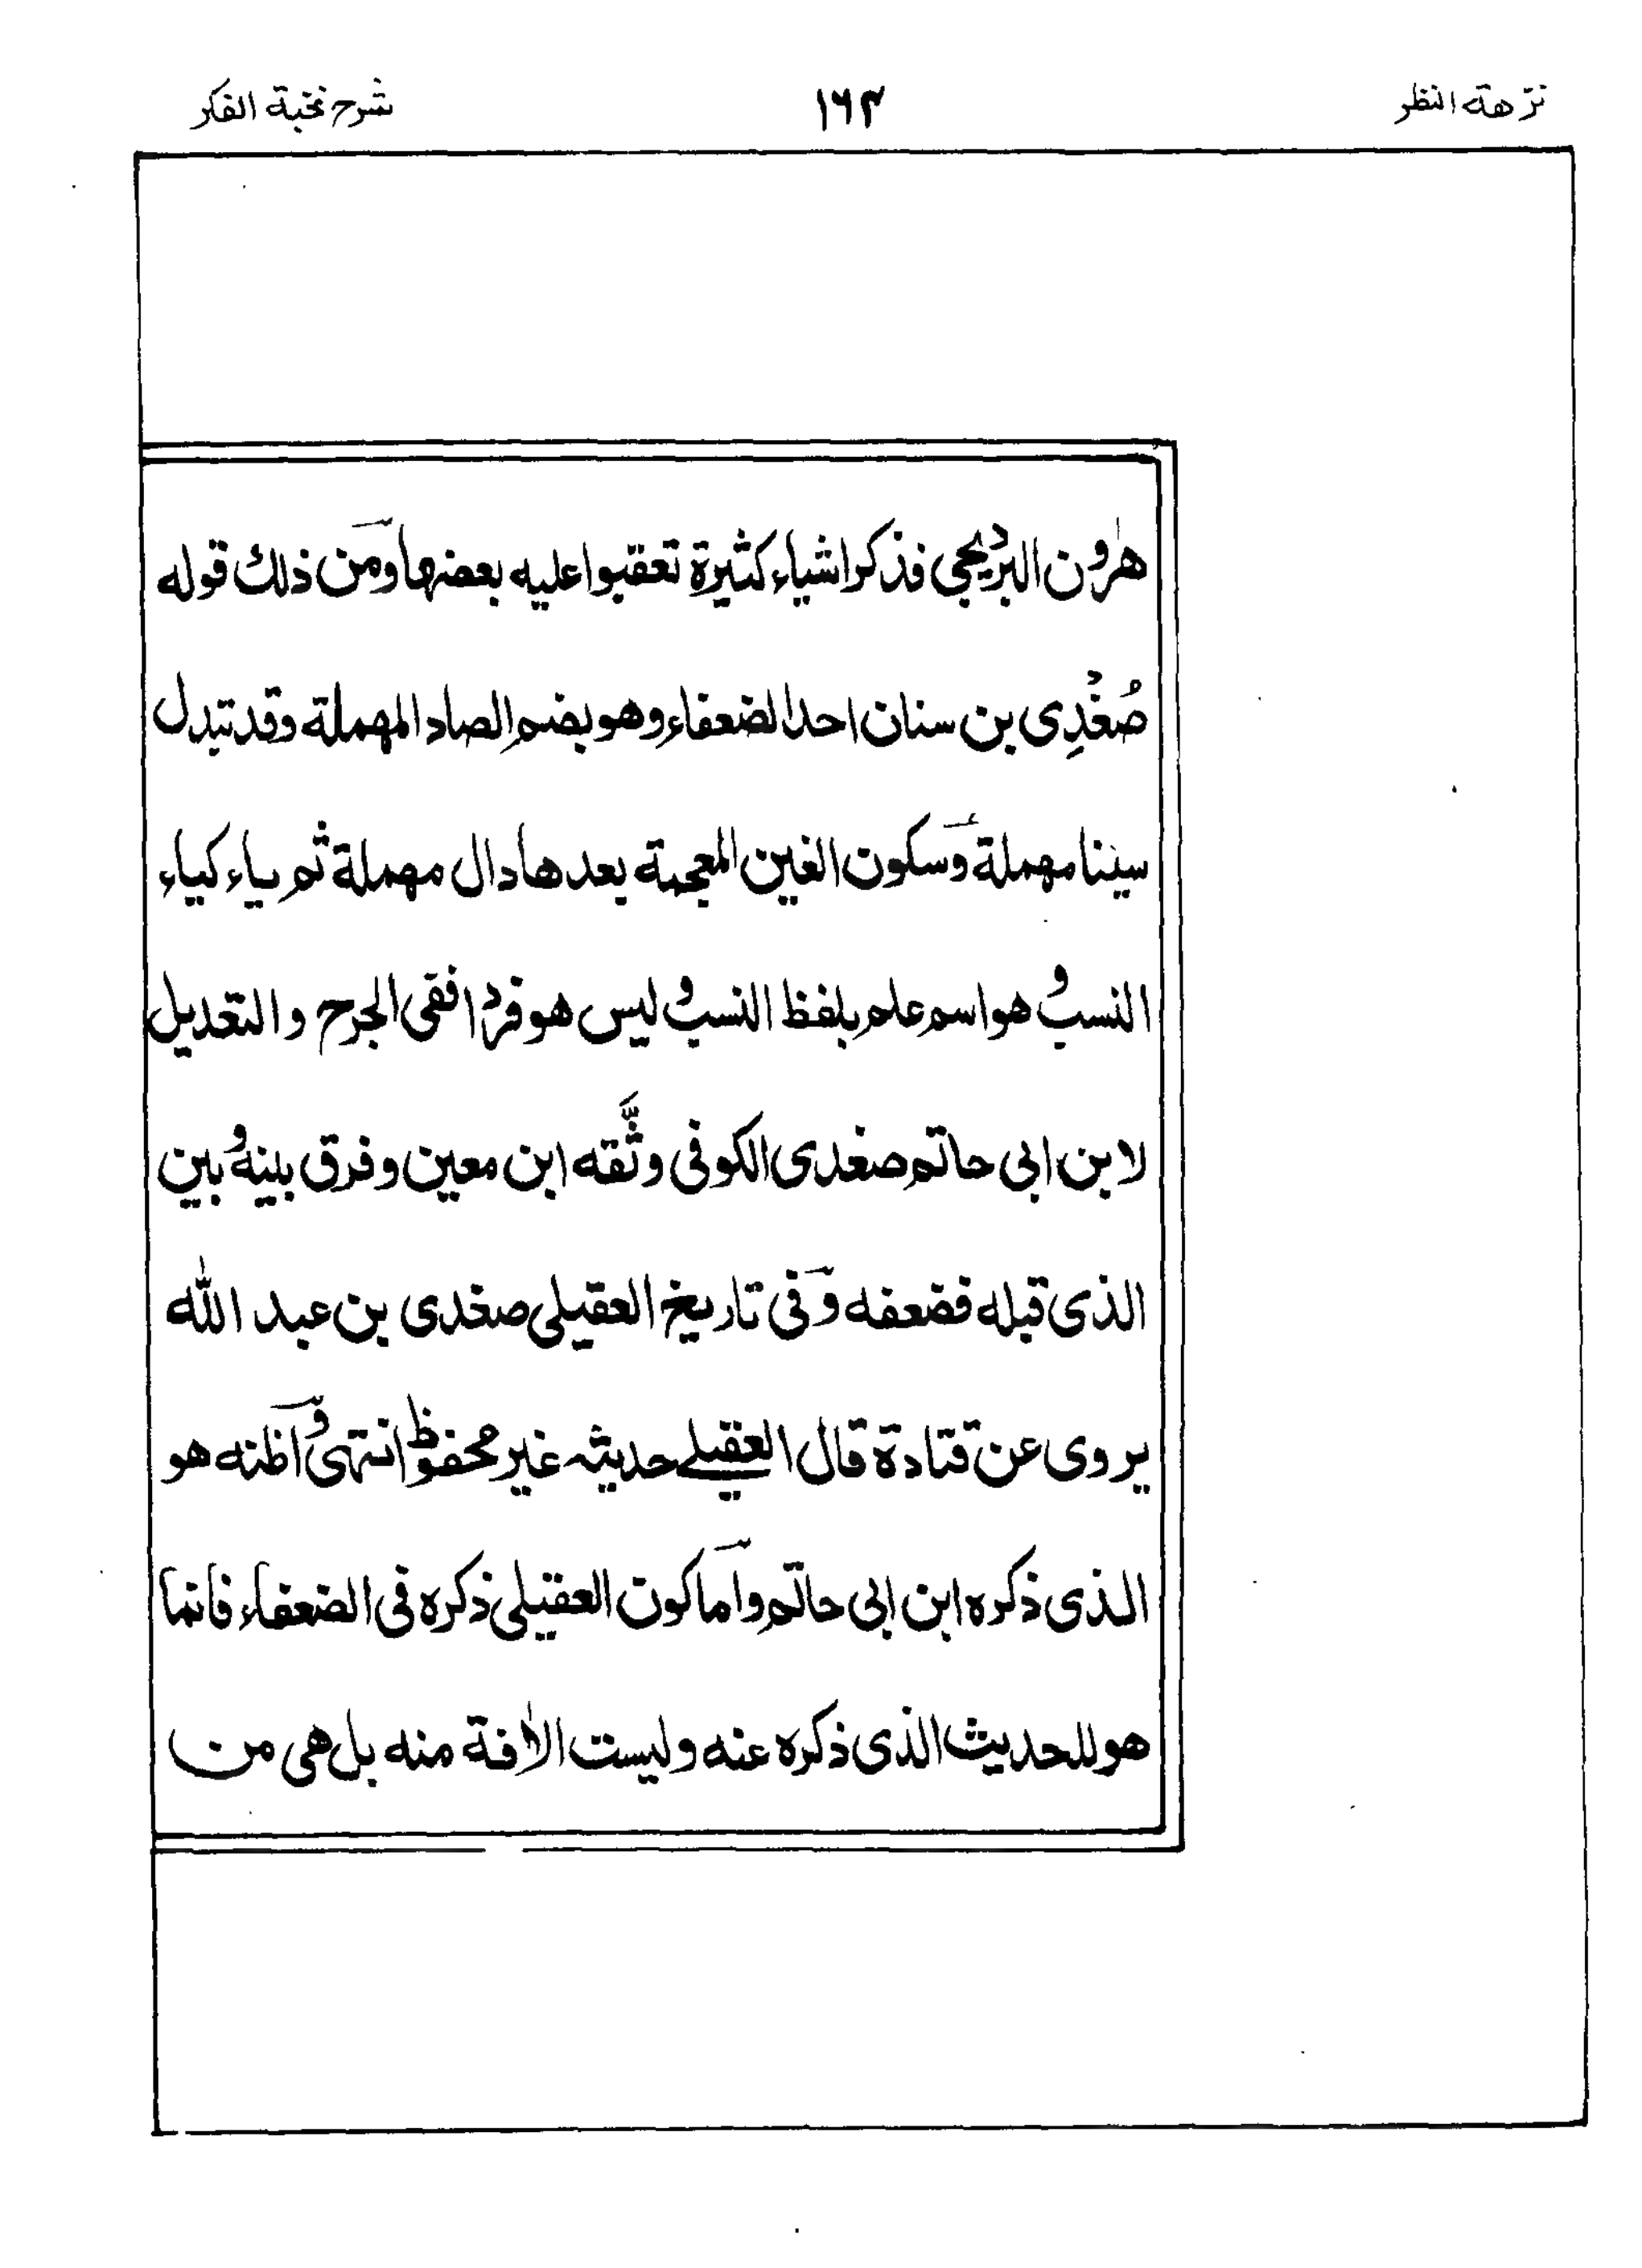 نزهة النظر ۱۶۴ شرح نخبة الفكر
هٰرون البرديجي فذكر اشياء كثيرة تعقبوا عليه بعضها ومن ذلك قوله
صُغْدِى بن سنان احد الضعفاء وهو بضم الصاد المهملة وقد تبدل
سينا مهملة وسكون الغين المعجمة بعدها دال مهملة ثم ياء كياء
النسب وهو اسم علم بلفظ النسب وليس هو فردا ففى الجرح والتعديل
لابن ابى حاتم صغدى الكوفى وثَّقه ابن معين وفرق بينه وبين
الذى قبله فضعفه وفى تاريخ العقيلى صغدى بن عبد الله
يروى عن قتادة قال العقيلے حديثه غير محفوظ انتهى واظنه هو
الذى ذكره ابن ابى حاتم واما كون العقيلى ذكره فى الضعفاء فانما
هو للحديث الذى ذكره عنه وليست الاٰفة منه بل هى من